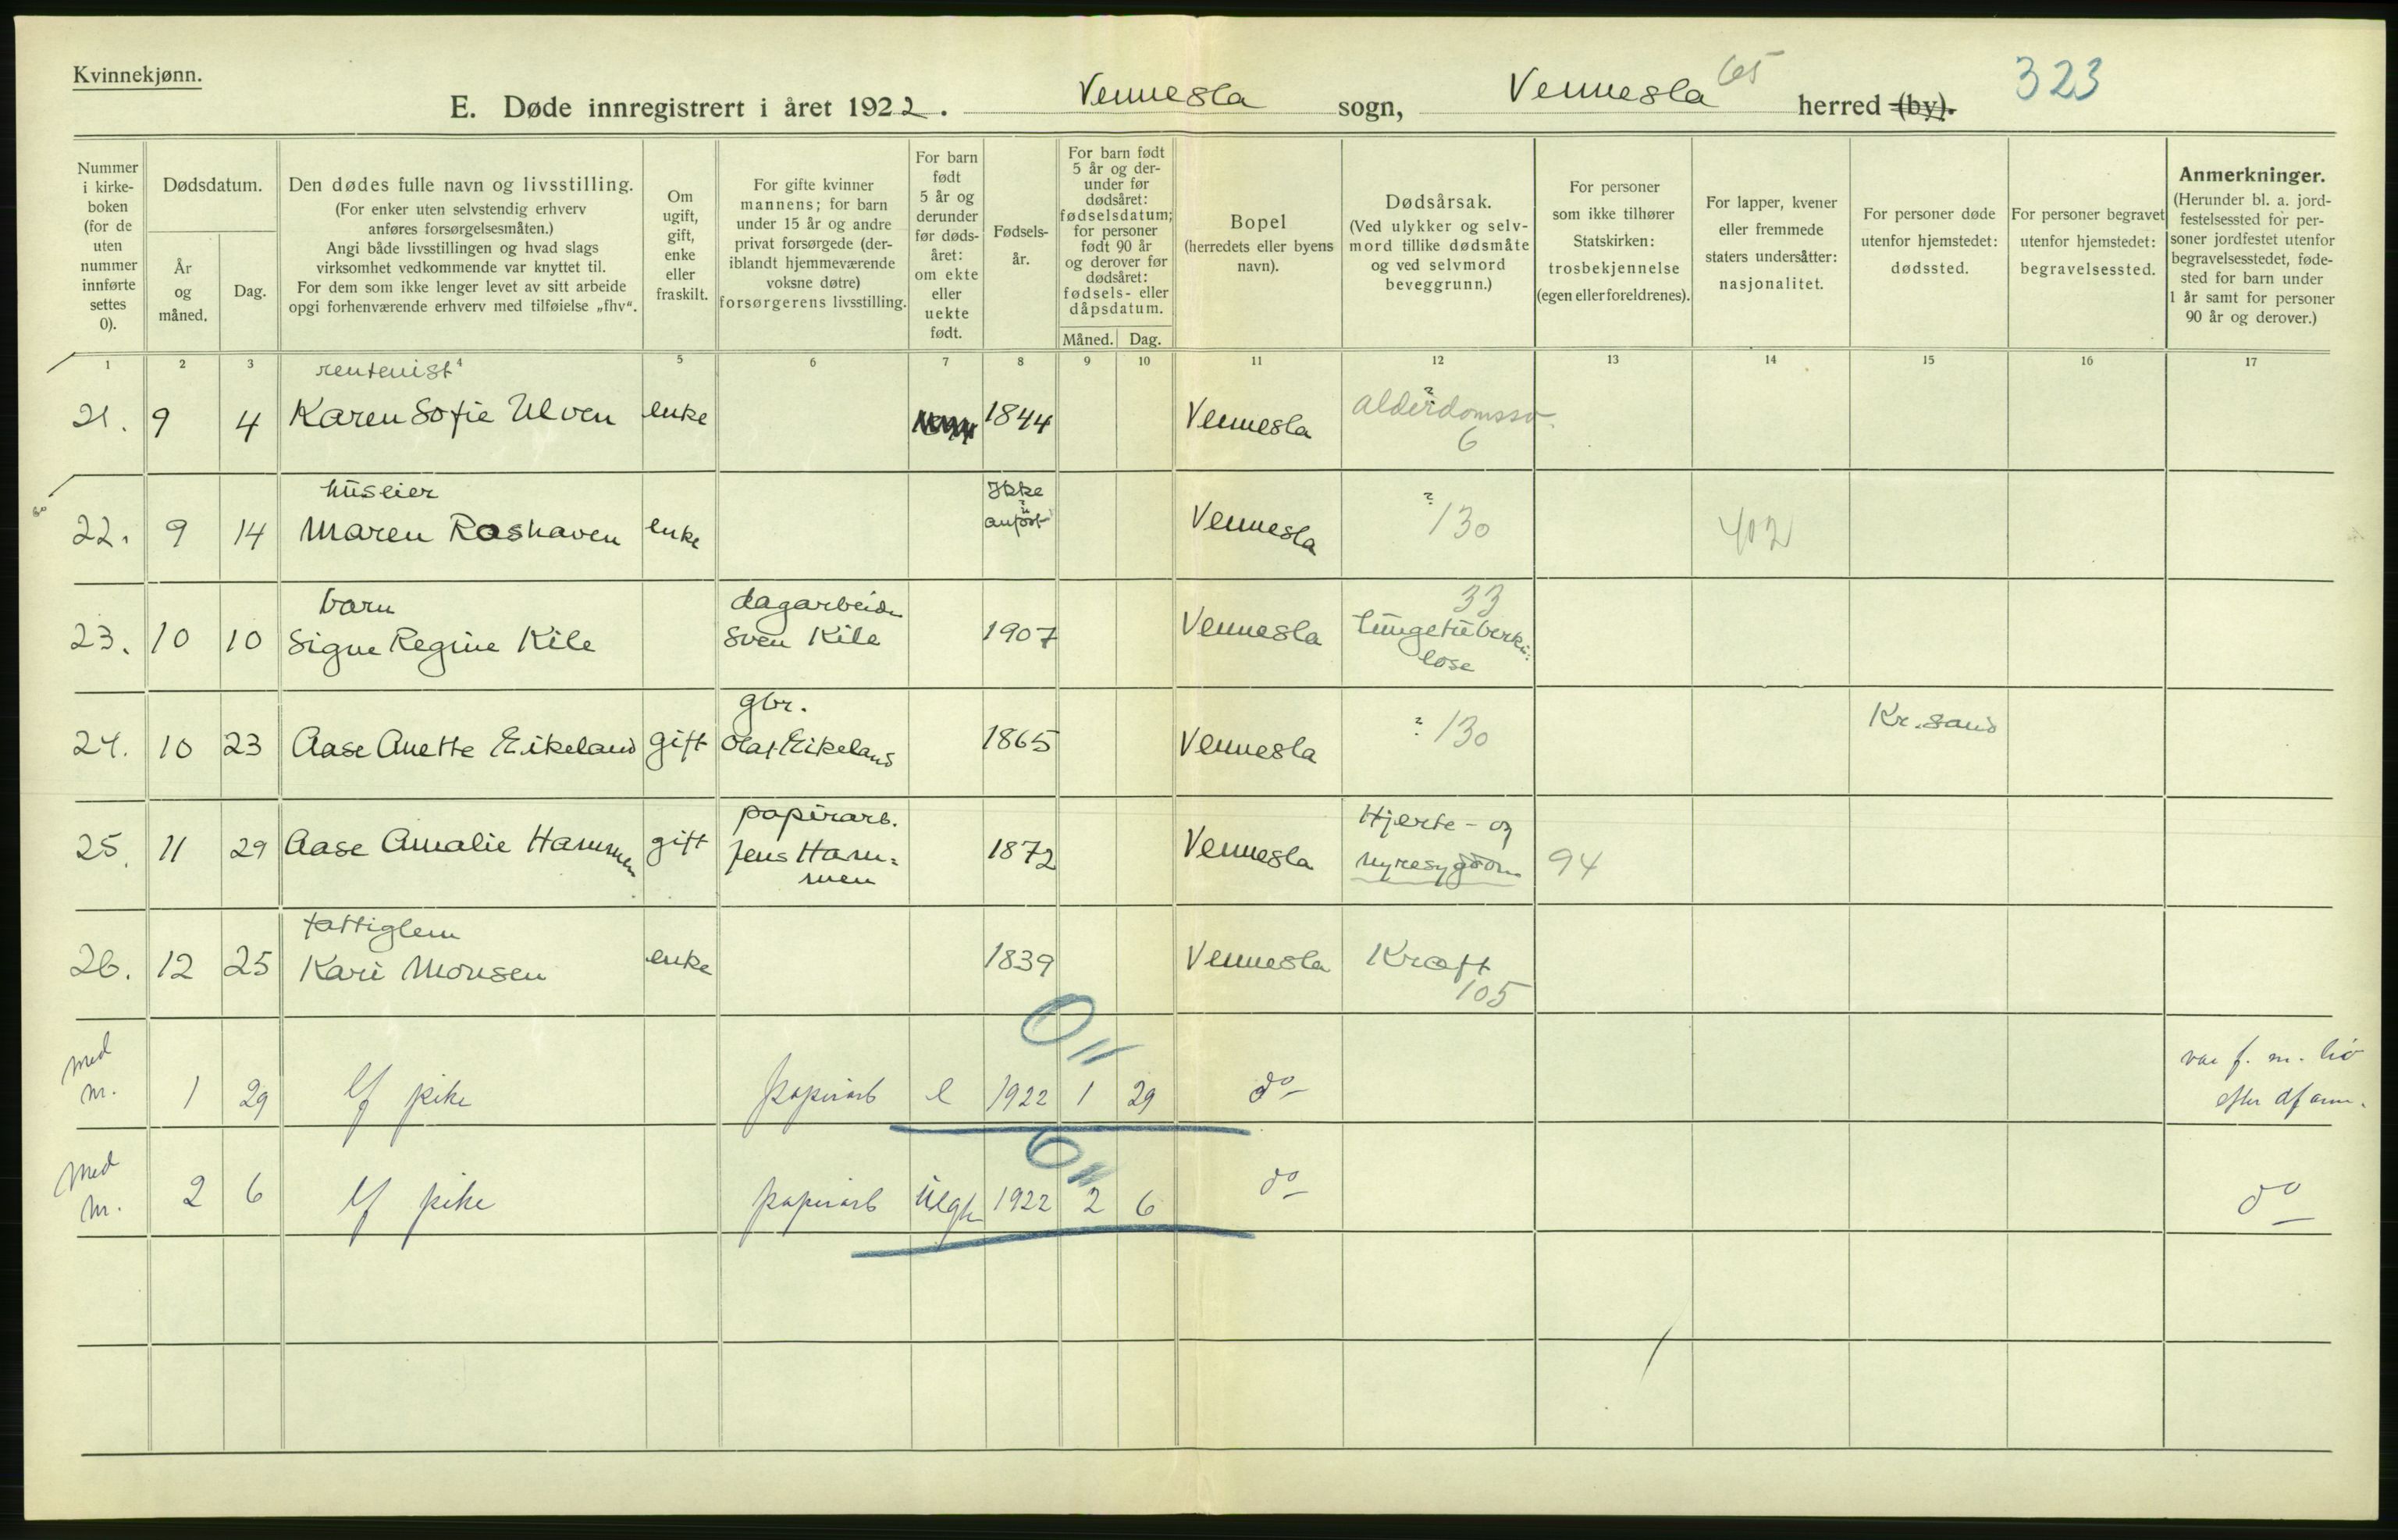 Kvinnekjønn.
E. Døde innregistrert i året 1922. Vennesla sogn, Vennesla 65 herred (by). 323
Nummer i kirke-boken (for de uten nummer innførte settes 0).
Dødsdatum.
År og måned.
Dag.
Den dødes fulle navn og livsstilling.
(For enker uten selvstendig erhverv anføres forsørgelsesmåten.)
Angi både livsstillingen og hvad slags virksomhet vedkommende var knyttet til.
For dem som ikke lenger levet av sitt arbeide opgi forhenværende erhverv med tilføielse „fhv“.
Om ugift, gift, enke eller fraskilt.
For gifte kvinner mannens; for barn under 15 år og andre privat forsørgede (der-iblandt hjemmeværende voksne døtre) forsørgerens livsstilling.
For barn født 5 år og derunder før døds-året: om ekte eller uekte født.
Fødsels-år.
For barn født 5 år og der-under før dødsåret: fødselsdatum; for personer født 90 år og derover før dødsåret: fødsels- eller dåpsdatum.
Måned. Dag.
Bopel
(herredets eller byens navn).
Dødsårsak.
(Ved ulykker og selv-mord tillike dødsmåte og ved selvmord beveggrunn.)
For personer som ikke tilhører Statskirken: trosbekjennelse (egen eller foreldrenes).
For lapper, kvener eller fremmede staters undersåtter: nasjonalitet.
For personer døde utenfor hjemstedet: dødssted.
For personer begravet utenfor hjemstedet: begravelsessted.
Anmerkninger.
(Herunder bl. a. jord-festelsessted for per-soner jordfestet utenfor begravelsesstedet, føde-sted for barn under 1 år samt for personer 90 år og derover.)
1 2 3 4 5 6 7 8 9 10 11 12 13 14 15 16 17
rentenist
21. 9 4 Karen Sofie Ulven enke 1844 Vennesla ? alderdomssv. 6
huseier Ikke
22. 9 14 Maren Roshaven enke anført Vennesla ? 130 402
barn dagarbeider 33
23. 10 10 Signe Regine Kile Sven Kile 1907 Vennesla Lungetuberku:
lose
gbr.
24. 10 23 Aase Anette Eikeland gift Olaf Eikeland 1865 Vennesla ? 130 Kr.sand
papirarb. Hjerte- og
25. 11 29 Aase Amalie Hammen gift Jens Ham= 1872 Vennesla nyresygdom 94
men
fattiglem
26. 12 25 Kari Monsen enke 1839 Vennesla Kræft
105
0
med
m. 1 29 Uf pike papirarb e 1922 1 29 do var f. m. liv
efter
0
Med
m. 2 6 Uf pike papirarb 1922 2 6 do do